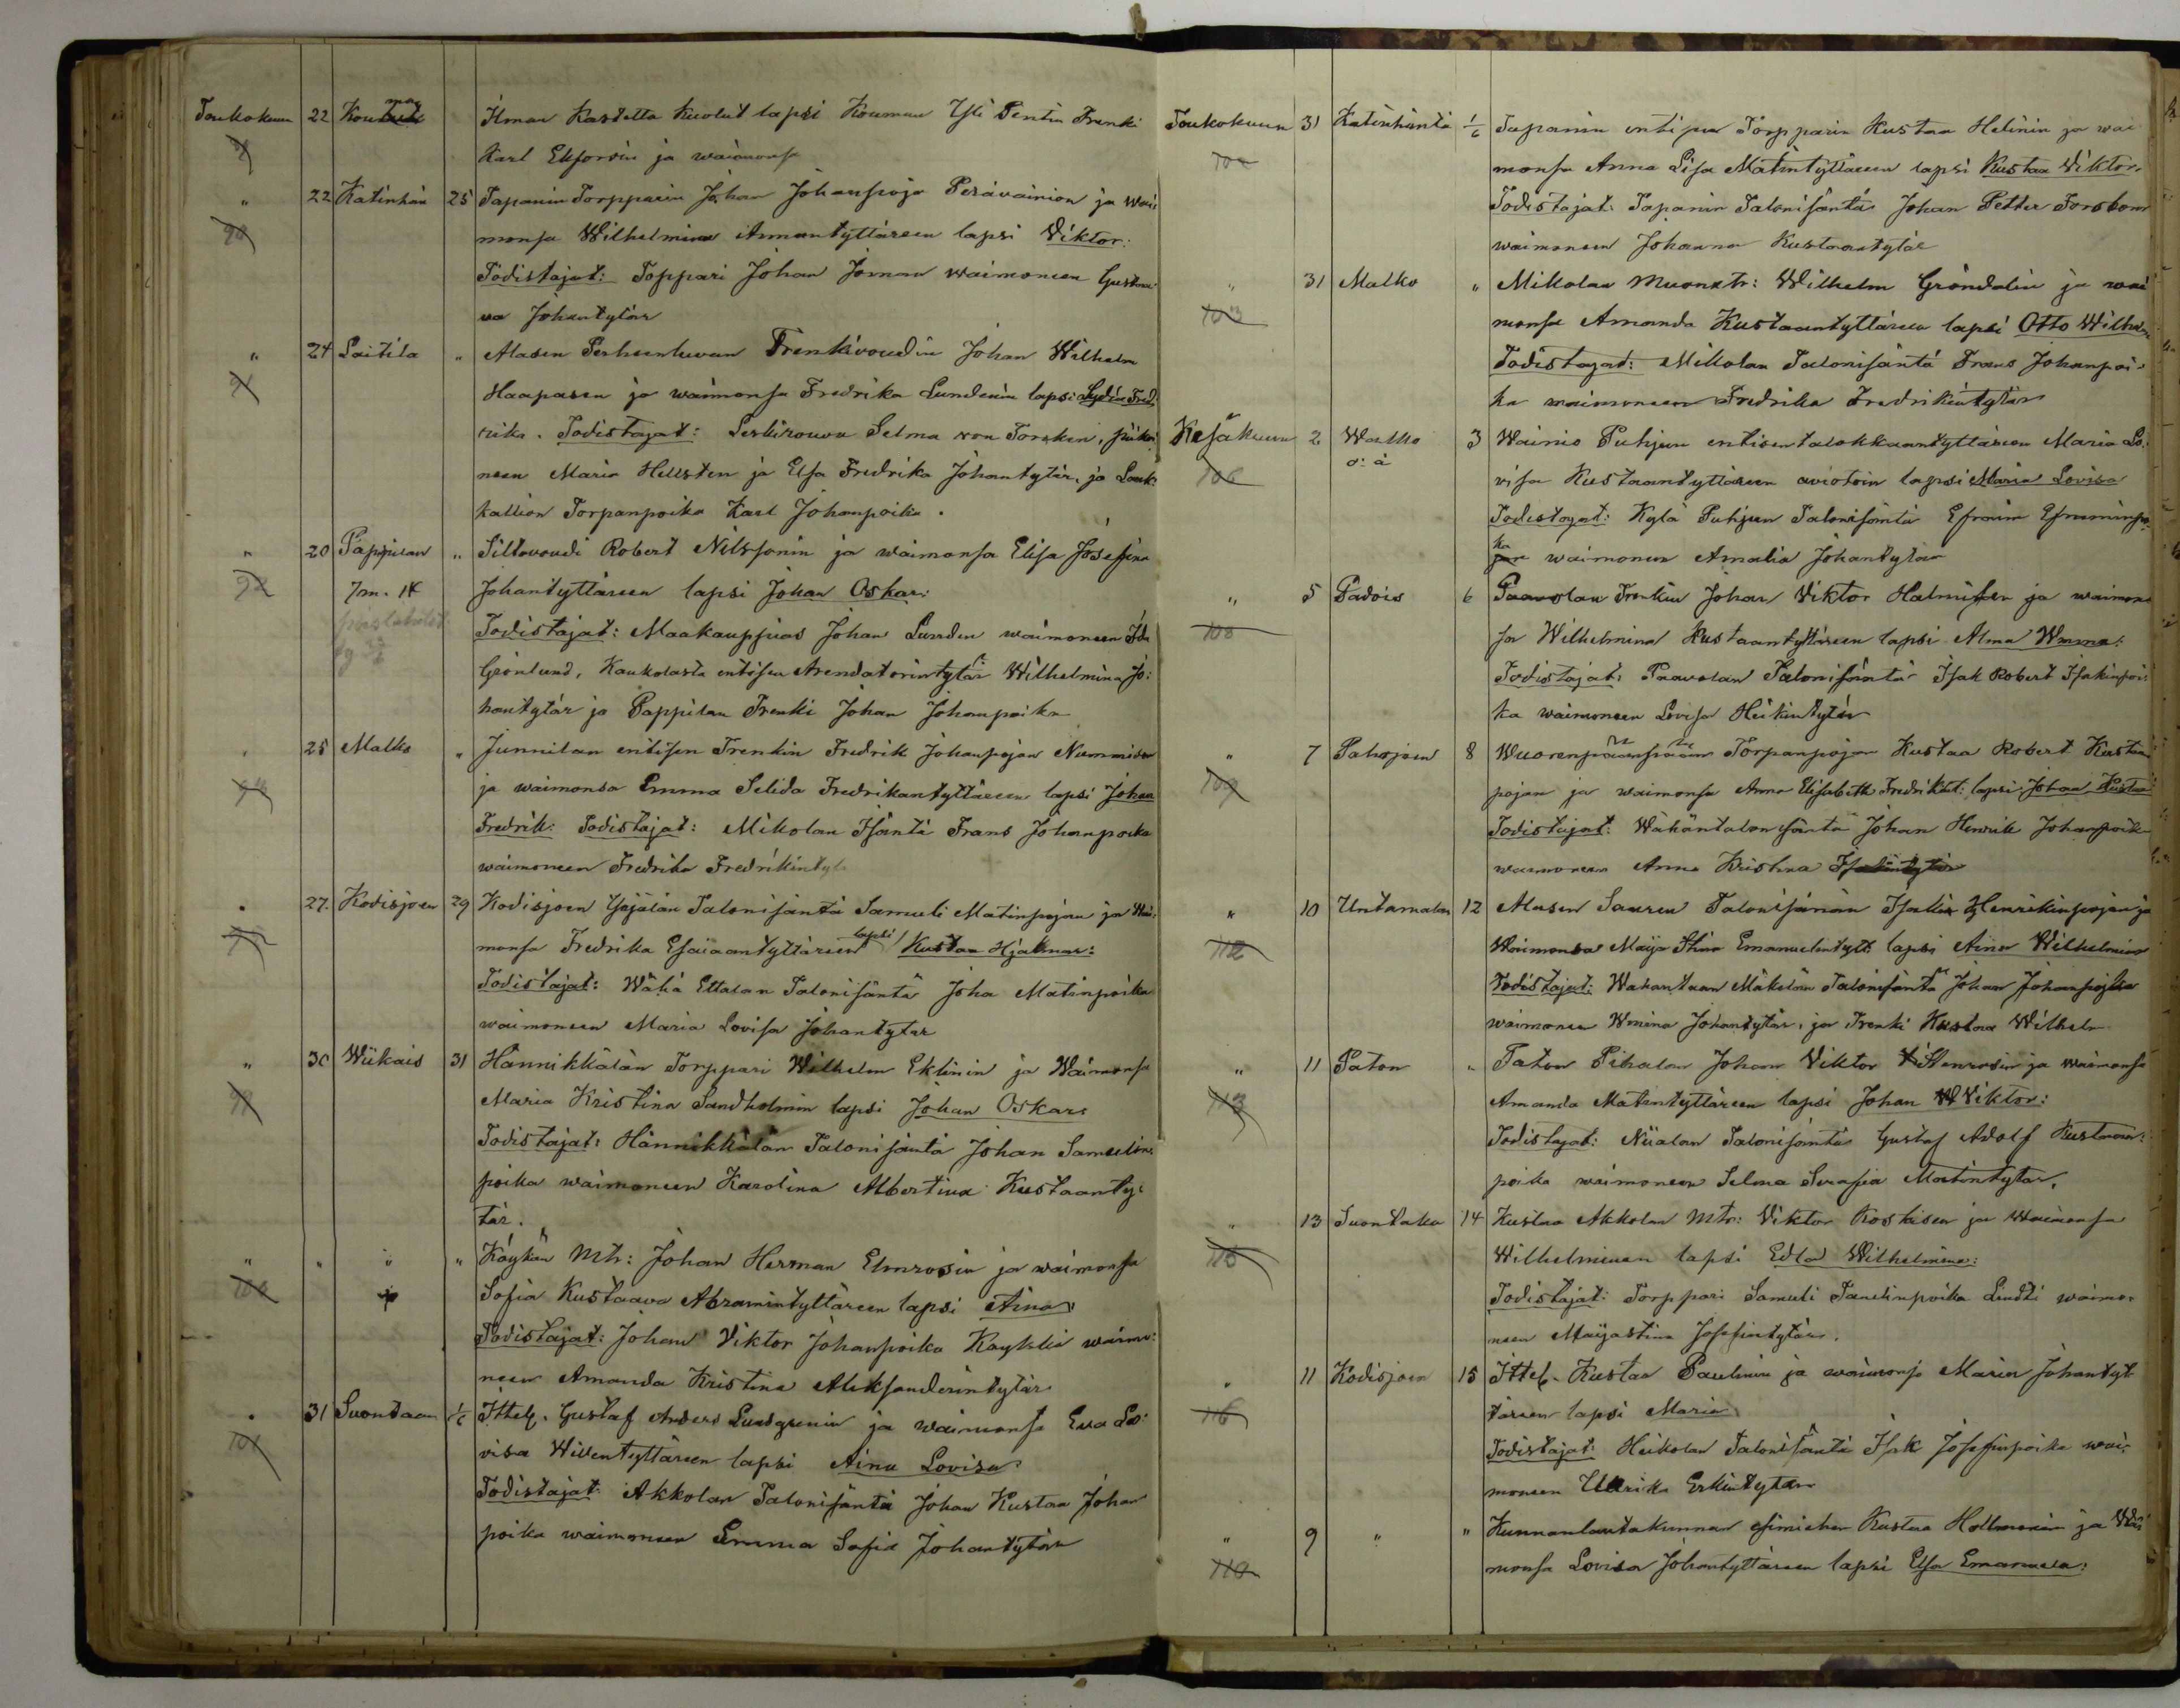 Toukokuun 22 Kouma Ilman Kastetta Kuolut lapsi Kouman Yli Pentin Trenki
Karl Ekforsin ja waimonsa
" 22 Katinhän 25 Tapanin Torpparin Johan Johanpoja Perävainion ja wai:
90 monsa Wilhelmina Annantyttäreen lapsi Viktor:
Todistajat: Toppari Johan Joman waimoneen Gustaa:
va Johantytär
" 24 Laitila " Alasen Perheenluvun Trenkivoudin Johan Wilhelm
91 Haapasen ja waimonsa Fredrika Lundenin lapsi Lydia Fred:
rika. Todistajat: Leskirouva Selma von Torcken, piika:
neen Maria Hellsten ja Elsa Fredrika Johantytär, ja Louk:
kallion Torpanpoika Karl Johanpoika.
" 20 Pappilan " Siltavoudi Robert Nilssonin ja waimonsa Elisa Josefina
92 Johantyttäreen lapsi Johan Oskar:
Todistajat: Maakauppias Johan Lunden waimoneen Ida
Grönlund, Kaukolasta entisen Arendatorintytär Wilhelmina Jo:
hantytär ja Pappilan Trenki Johan Johanpoika
25 Malko " Junnilan entisen Trenkin Fredrik Johanpojan Nummisen
ja waimonsa Emma Selida Fredrikantyttäreen lapsi Johan
Fredrik: Todistajat: Mikolan Isäntä Frans Johanpoika
waimoneen Fredrika Fredrikintyt
27 Kodisjoen 29 Kodisjoen Yäjälän Talonisäntä Samuli Matinpojan ja Wai:
monsa Fredrika Esaiaantyttäreen lapsi Kustaa Hjalmar:
Todistajat: Wähä Ettalan Talonisäntä Joha Matinpoika
waimoneen Maria Lovisa Johantytär
" 30 Wiikais 31 Hännikkälän Torppari Wilhelm Eklinin ja Waimonsa
Maria Kristina Sandholmin lapsi Johan Oskar:
Todistajat: Hännikkälän Talonisäntä Johan Samulin:
poika waimoneen Karolina Albertina Kustaanty:
tär.
" " " " Käykän Mtr: Johan Herman Elmrosin ja waimonsa
100 Sofia Kustaava Abramintyttäreen lapsi Aina:
Todistajat: Johan Viktor Johanpoika waimo:
neen Amanda Kristina Aleksanderintytär
31 Suontaan 1/6 Ittell. Gustaf Anders Lundgrenin ja waimonsa Eva Lo:
101 visa Willentyttäreen lapsi Aina Lovisa:
Todistajat: Akkolan Talonisäntä Johan Kustaa Johan
poika waimoneen Emma Sofia Johantytär
Toukokuun 31 Katinhäntä 1/6 Tapanin entisen Torpparin Kustaa Helinin ja wai
monsa Anna Lisa Matintyttäreen lapsi Kustaa Viktor.
Todistajat: Tapanin Talonisäntä Johan Petter Forsbom
waimoneen Johanna Kustaantytär
" 31 Malko " Mikolan Muonatr: Wilhelm Gröndalin ja wai
103 monsa Amanda Kustaantyttäreen lapsi Otto Wilhelm
Todistajat: Mikolan Talonisäntä Frans Johanpoi:
ka waimoneen Fredrika Fredrikintytär
Kesäkuun 2 Waltko 3 Wainio Puhjun entisen talokkaantyttäreen Maria Lo:
106 visa Kustaantyttäreen aviotoin lapsi Maria Lovisa
Todistajat: Kylä Puhjun Talonisäntä Efraim Efraiminpoi
ka waimoneen Amalia Johantytär
" 5 Padois 6 Paavolan Trenkin Johan Viktor Halmisen ja waimon:
108 sa Wilhelmina Kustaantyttäreen lapsi Alma Wmma:
Todistajat: Paavolan Talonisäntä Isak Robert Isakinpoi:
ka waimoneen Lovisa Heikintytär
" 7 Pahojoen 8 Wuorenpään Torpanpojan Kustaa Robert Kustaa
109 pojan ja waimonsa Anna Elisabeth Fredrikt: lapsi Johan Kustaa
Todistajat: Wähäntalon isäntä Johan Henrik Johanpoika
waimoneen Anna Kristina Isakintytär
" 10 Untamalan 12 Alasen Sauren Talonisännän Isakin Henrikinpojan ja
112 Waimonsa Maija Stina Emanuelintytt: lapsi Aina Wilhelmina
Todistajat: Wahantaan Mäkelän Talonisäntä Johan Johanpoika
waimoneen Wmina Johantytär, ja Trenki Kustaa Wilhelm
" 11 Paton " Paton Pihalan Johan Viktor ja waimonsa
113 Amanda Matintyttäreen lapsi Johan Viktor:
Todistajat: Niialan Talonisäntä Gustaf Adolf Kustaan:
poika waimoneen Selma Serafia Matintytär.
" 13 Suontaka 14 Kustaa Akkolan Mtr: Viktor Koskisen ja Waimonsa
115 Wilhelminan lapsi Edla Wilhelmina:
Todistajat: Torppari Samuli Tanelinpoika Lindti waimo:
neen Maijastina Josefintytär.
11 Kodisjoen 15 Ittell. Kustaa Paulinin ja waimonsa Maria Johantyt
116 täreen lapsi Maria
Todistajat: Heikolan Talonisäntä Isak Josefinpoika wai:
moneen Ulrika Erkintytär
" 9 " " Kunnanlautakunnan esimiehen Kustaa Hollmenin ja Wai
110 monsa Lovisa Johantyttäreen lapsi Elsa Emanuela: